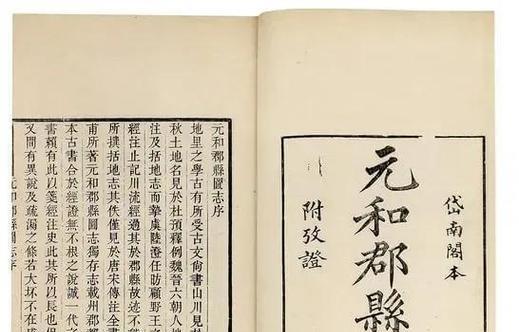 岱南閣本
元和郡縣
附攷證
元和郡縣圖志序
地里之學古有所受古文尚書山川見
秋土地名見於杜預釋例魏晉六朝人地
注及括地志而摯虞陸澄任昉顧野王
經注止記川流經過其於郡縣故
所撰括地志其佚僅見於唐宋傳注全書
甫所著元和郡縣圖志獨存志載州郡都
本古書合於經證無不根之說誠一代之
書賴有此以箋經注史此其所以長也但
又間有異說及疏漏之條若大坏不在成
元和郡縣圖志序